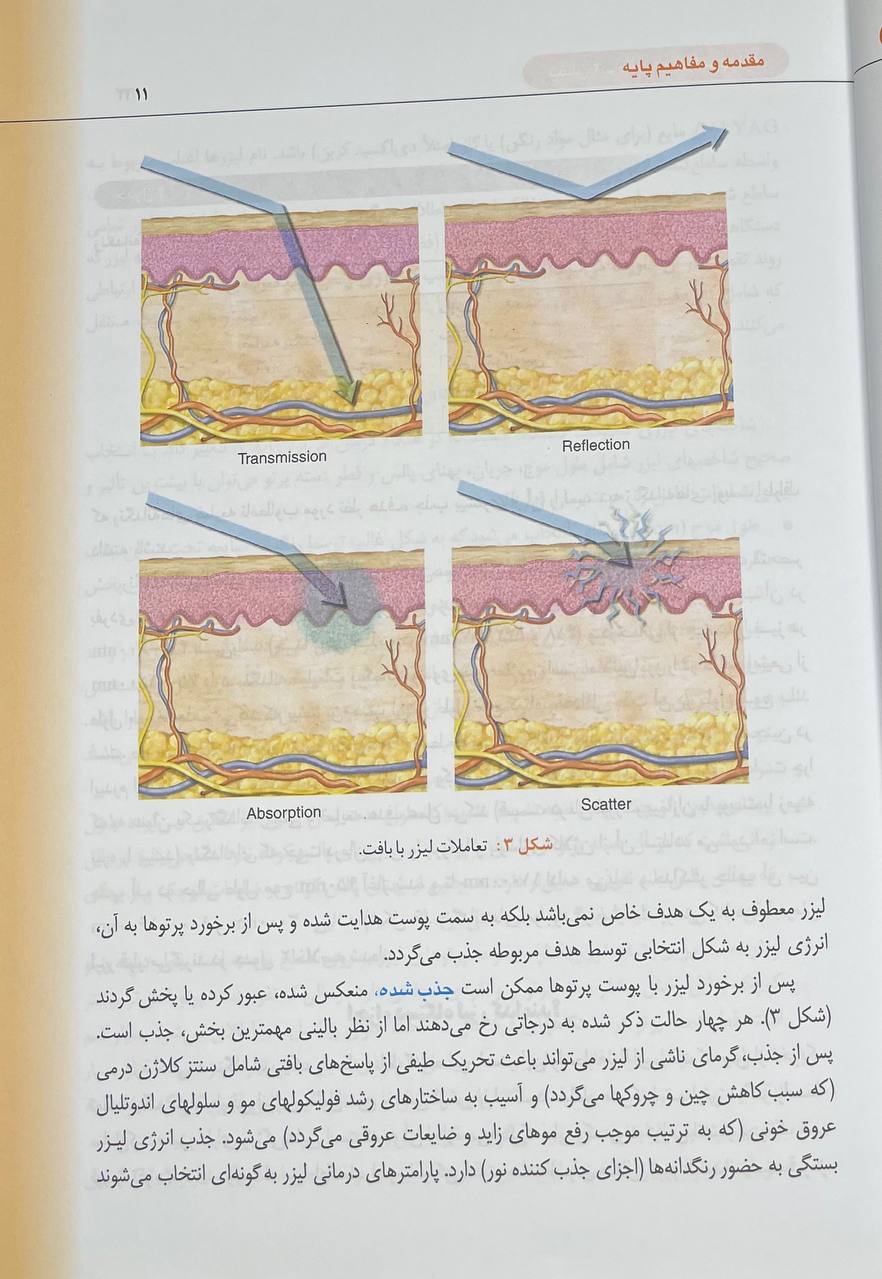 مقدمه و مفاهیم پایه
۱۱
Transmission
Reflection
Absorption
Scatter
شکل ۳: تعاملات لیزر با بافت.
لیزر معطوف به یک هدف خاص نمی‌باشد بلکه به سمت پوست هدایت شده و پس از برخورد پرتوها به آن،
انرژی لیزر به شکل انتخابی توسط هدف مربوطه جذب می‌گردد.
پس از برخورد لیزر با پوست پرتوها ممکن است جذب شده، منعکس شده، عبور کرده یا پخش گردند
(شکل ۳). هر چهار حالت ذکر شده به درجاتی رخ می‌دهند اما از نظر بالینی مهمترین بخش، جذب است.
پس از جذب، گرمای ناشی از لیزر می‌تواند باعث تحریک طیفی از پاسخ‌های بافتی شامل سنتز کلاژن درمی
(که سبب کاهش چین و چروکها می‌گردد) و آسیب به ساختارهای رشد فولیکولهای مو و سلولهای اندوتلیال
عروق خونی (که به ترتیب موجب رفع موهای زاید و ضایعات عروقی می‌گردد) می‌شود. جذب انرژی لیزر
بستگی به حضور رنگدانه‌ها (اجزای جذب کننده نور) دارد. پارامترهای درمانی لیزر به گونه‌ای انتخاب می‌شوند